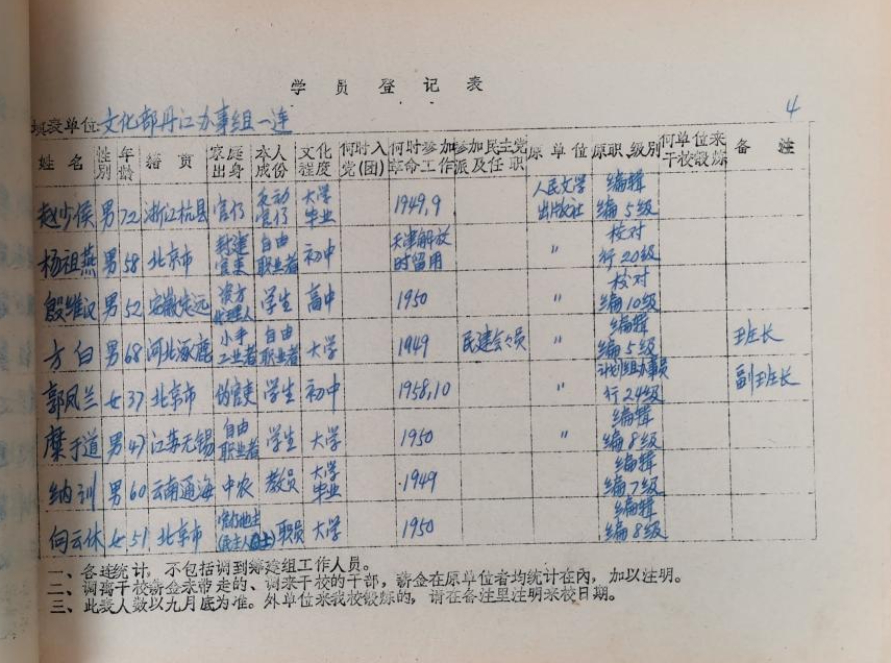 学员登记表
4
填表单位 文化部丹江办事组一连
姓名 性别 年龄 籍贯 家庭出身 本人成份 文化程度 何时入党(团) 何时参加革命工作 参加民主党派及任职 原单位 原职、级别 何单位来干校锻炼 备注
赵少侯 男 72 浙江杭县 官僚 反动官僚 大学毕业 1949,9 人民文学出版社 编辑 编5级
杨祖燕 男 58 北京市 封建官吏 自由职业者 初中 天津解放时留用 〃 校对 行20级
殷维汉 男 52 安徽定远 资方代理人 学生 高中 1950 〃 校对 编10级
方白 男 68 河北涿鹿 小手工业者 自由职业者 大学 1949 民建会会员 〃 编辑 编5级 班长
郭凤兰 女 37 北京市 伪官吏 学生 初中 1958,10 〃 计划组办事员 行24级 副班长
糜于道 男 47 江苏无锡 自由职业者 学生 大学 1950 〃 编辑 编8级
纳训 男 60 云南通海 中农 教员 大学毕业 1949 编辑 编7级
向云休 女 51 北京市 职员 大学 1950 编辑 编8级
一、各连统计，不包括调到筹建组工作人员。
二、调离干校薪金未带走的、调来干校的干部，薪金在原单位者均统计在内，加以注明。
三、此表人数以九月底为准。外单位来我校锻炼的，请在备注里注明来校日期。